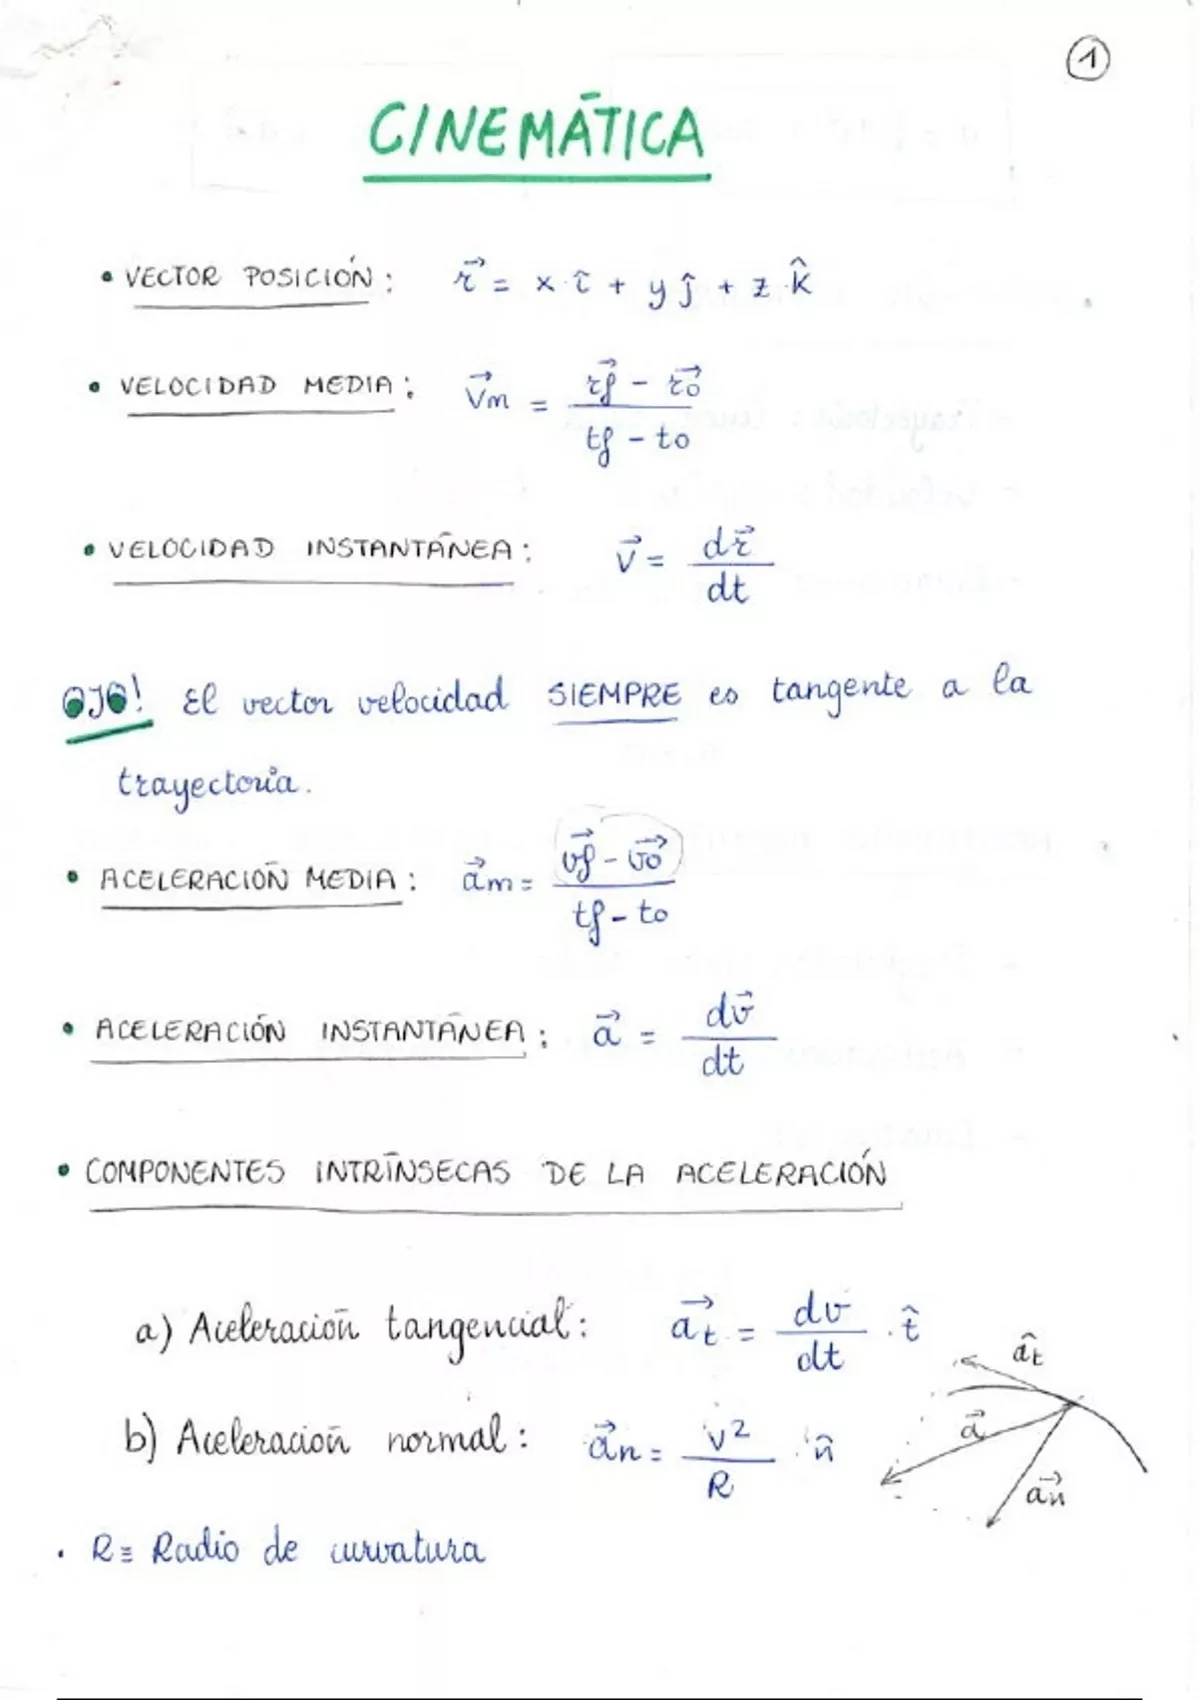 1
CINEMÁTICA
• VECTOR POSICIÓN: r⃗ = x·î + y ĵ + z·k̂
• VELOCIDAD MEDIA: v⃗m = (r⃗f - r⃗o) / (tf - to)
• VELOCIDAD INSTANTÁNEA: v⃗ = dr⃗ / dt
OJO! El vector velocidad SIEMPRE es tangente a la
trayectoria.
• ACELERACIÓN MEDIA: a⃗m = (v⃗f - v⃗o) / (tf - to)
• ACELERACIÓN INSTANTÁNEA: a⃗ = dv⃗ / dt
• COMPONENTES INTRÍNSECAS DE LA ACELERACIÓN
a) Aceleración tangencial: a⃗t = dv / dt · t̂
b) Aceleración normal: a⃗n = v² / R · n̂
ât
a⃗
a⃗n
· R ≡ Radio de curvatura